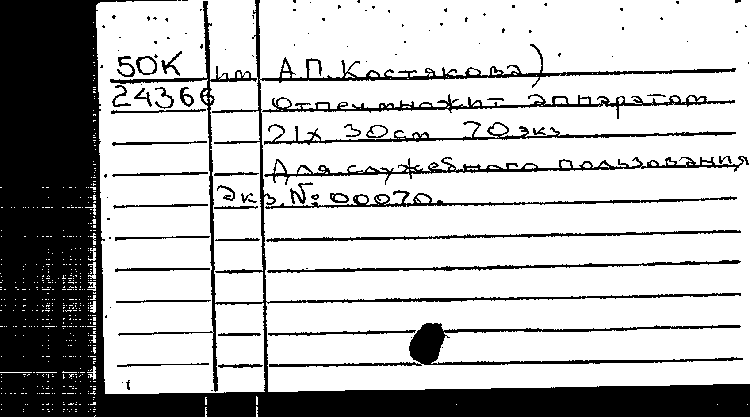 50К им. А.П. Костякова)
24366 Отпеч. множит. аппаратом
21х 30см 70 экз.
Для служебного пользования
Экз. № 00070.